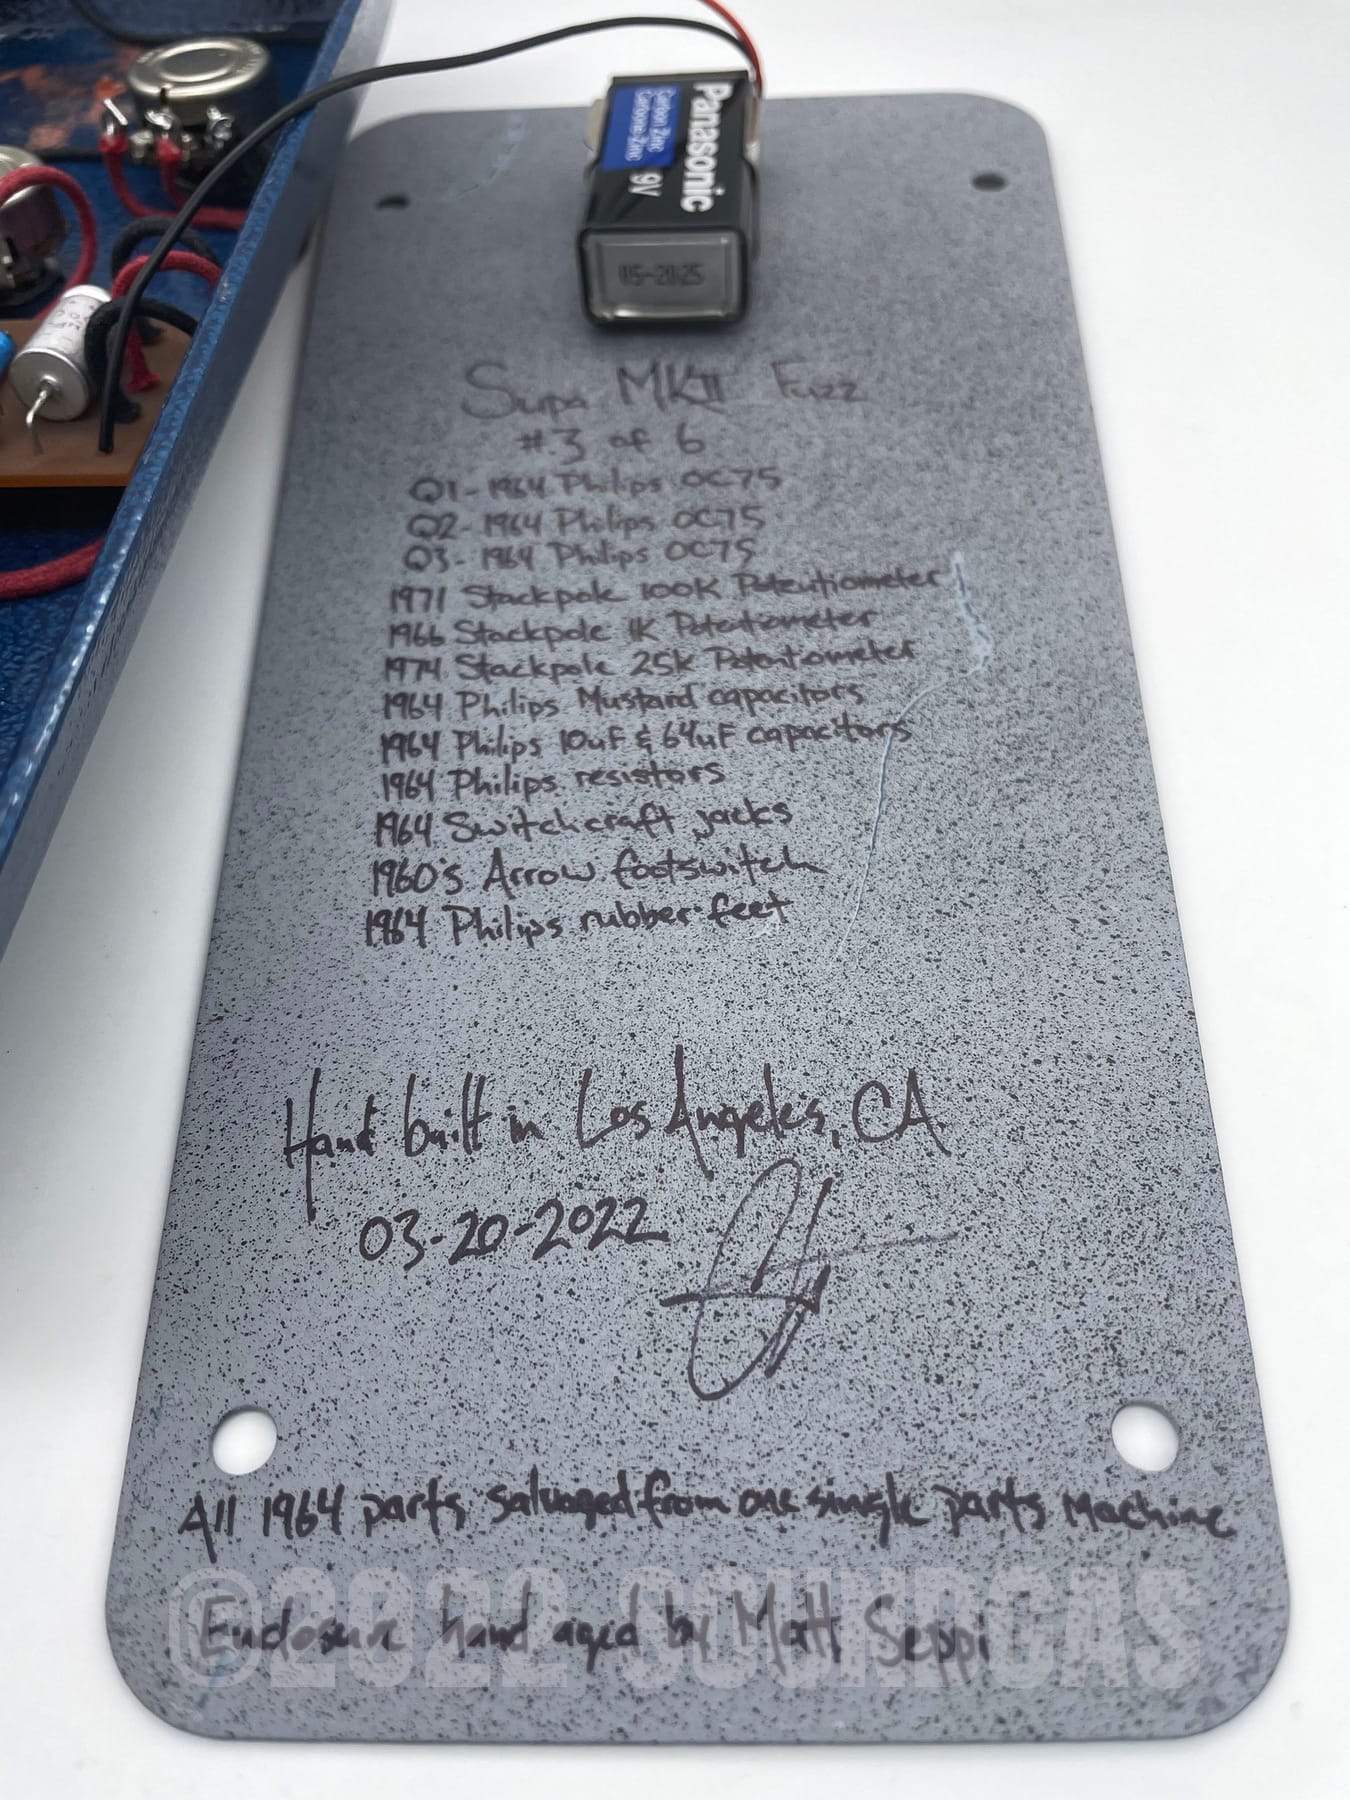 Panasonic
Carbon Zinc
Carbone-Zinc
9V
05-2025
Supa MKII Fuzz
#3 of 6
Q1- 1964 Philips OC75
Q2- 1964 Philips OC75
Q3- 1964 Philips OC75
1971 Stackpole 100K Potentiometer
1966 Stackpole 1K Potentiometer
1974 Stackpole 25K Potentiometer
1964 Philips Mustard capacitors
1964 Philips 10uF & 64uF capacitors
1964 Philips resistors
1964 Switchcraft jacks
1960's Arrow footswitch
1964 Philips rubber feet
Hand built in Los Angeles, CA
03-20-2022
All 1964 parts salvaged from one single parts machine
Enclosure hand aged by Matt Seppi
©2022 SOUNDGAS